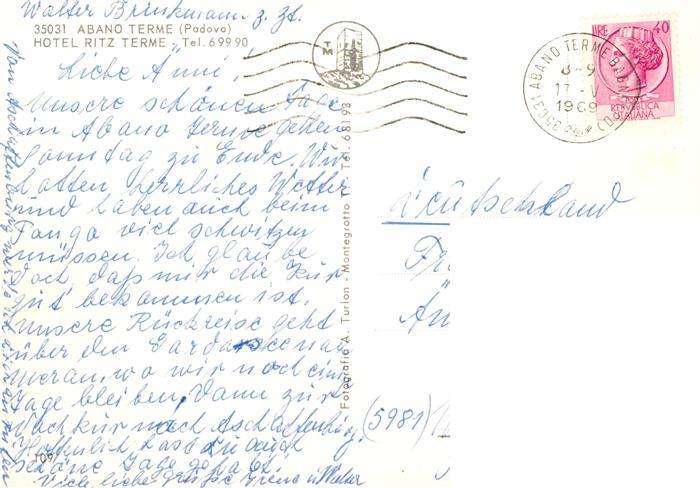 Walter Brinkmann z. Zt.
35031 ABANO TERME (Padova)
HOTEL RITZ TERME - Tel. 699 90
Liebe Änni,
Unsere schönen Tage
in Abano Terme gehen
Sonntag zu Ende. Wir
hatten herrliches Wetter
und haben auch beim
Fango viel schwitzen
müssen. Ich glaube
doch, daß mir die Kur
gut bekommen ist.
Unsere Rückreise geht
über den Gardasee nach
Meran, wo wir noch ein
Tage bleiben. Dann zur
Nachkur nach Aschaffenburg.
Hoffentlich hast du auch
schöne Tage gehabt.
Viele liebe Grüße Irene u. Walter
Von Aschaffenburg werde ich dich anrufen
109
Fotografia A. Turlon - Montegrotto T. - Tel. 681 93
TM
LIRE 40
REPUBBLICA
ITALIANA
35031 ABANO TERME
1969
Deutschland
Fr
Än
(5981)